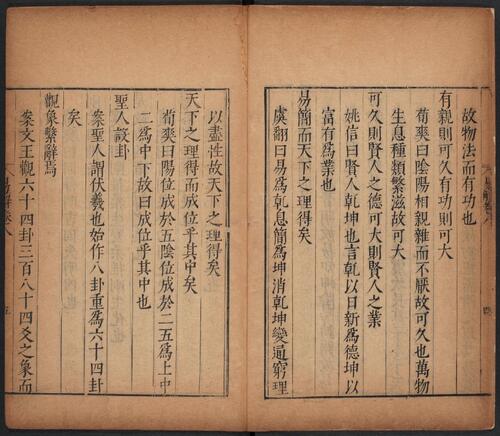 故物法而有功也
有親則可久有功則可大
荀爽曰陰陽相親雜而不厭故可久也萬物
生息種類繁滋故可大
可久則賢人之德可大則賢人之業
姚信曰賢人乾坤也言乾以日新爲德坤以
富有爲業也
易簡而天下之理得矣
虞翻曰易爲乾息簡爲坤消乾坤變通窮理
以盡性故天下之理得矣
天下之理得而成位乎其中矣
荀爽曰陽位成於五陰位成於二五爲上中
二爲中下故曰成位乎其中也
聖人設卦
案聖人謂伏羲也始作八卦重爲六十四卦
矣
觀象繫辭焉
案文王觀六十四卦三百八十四爻之象而